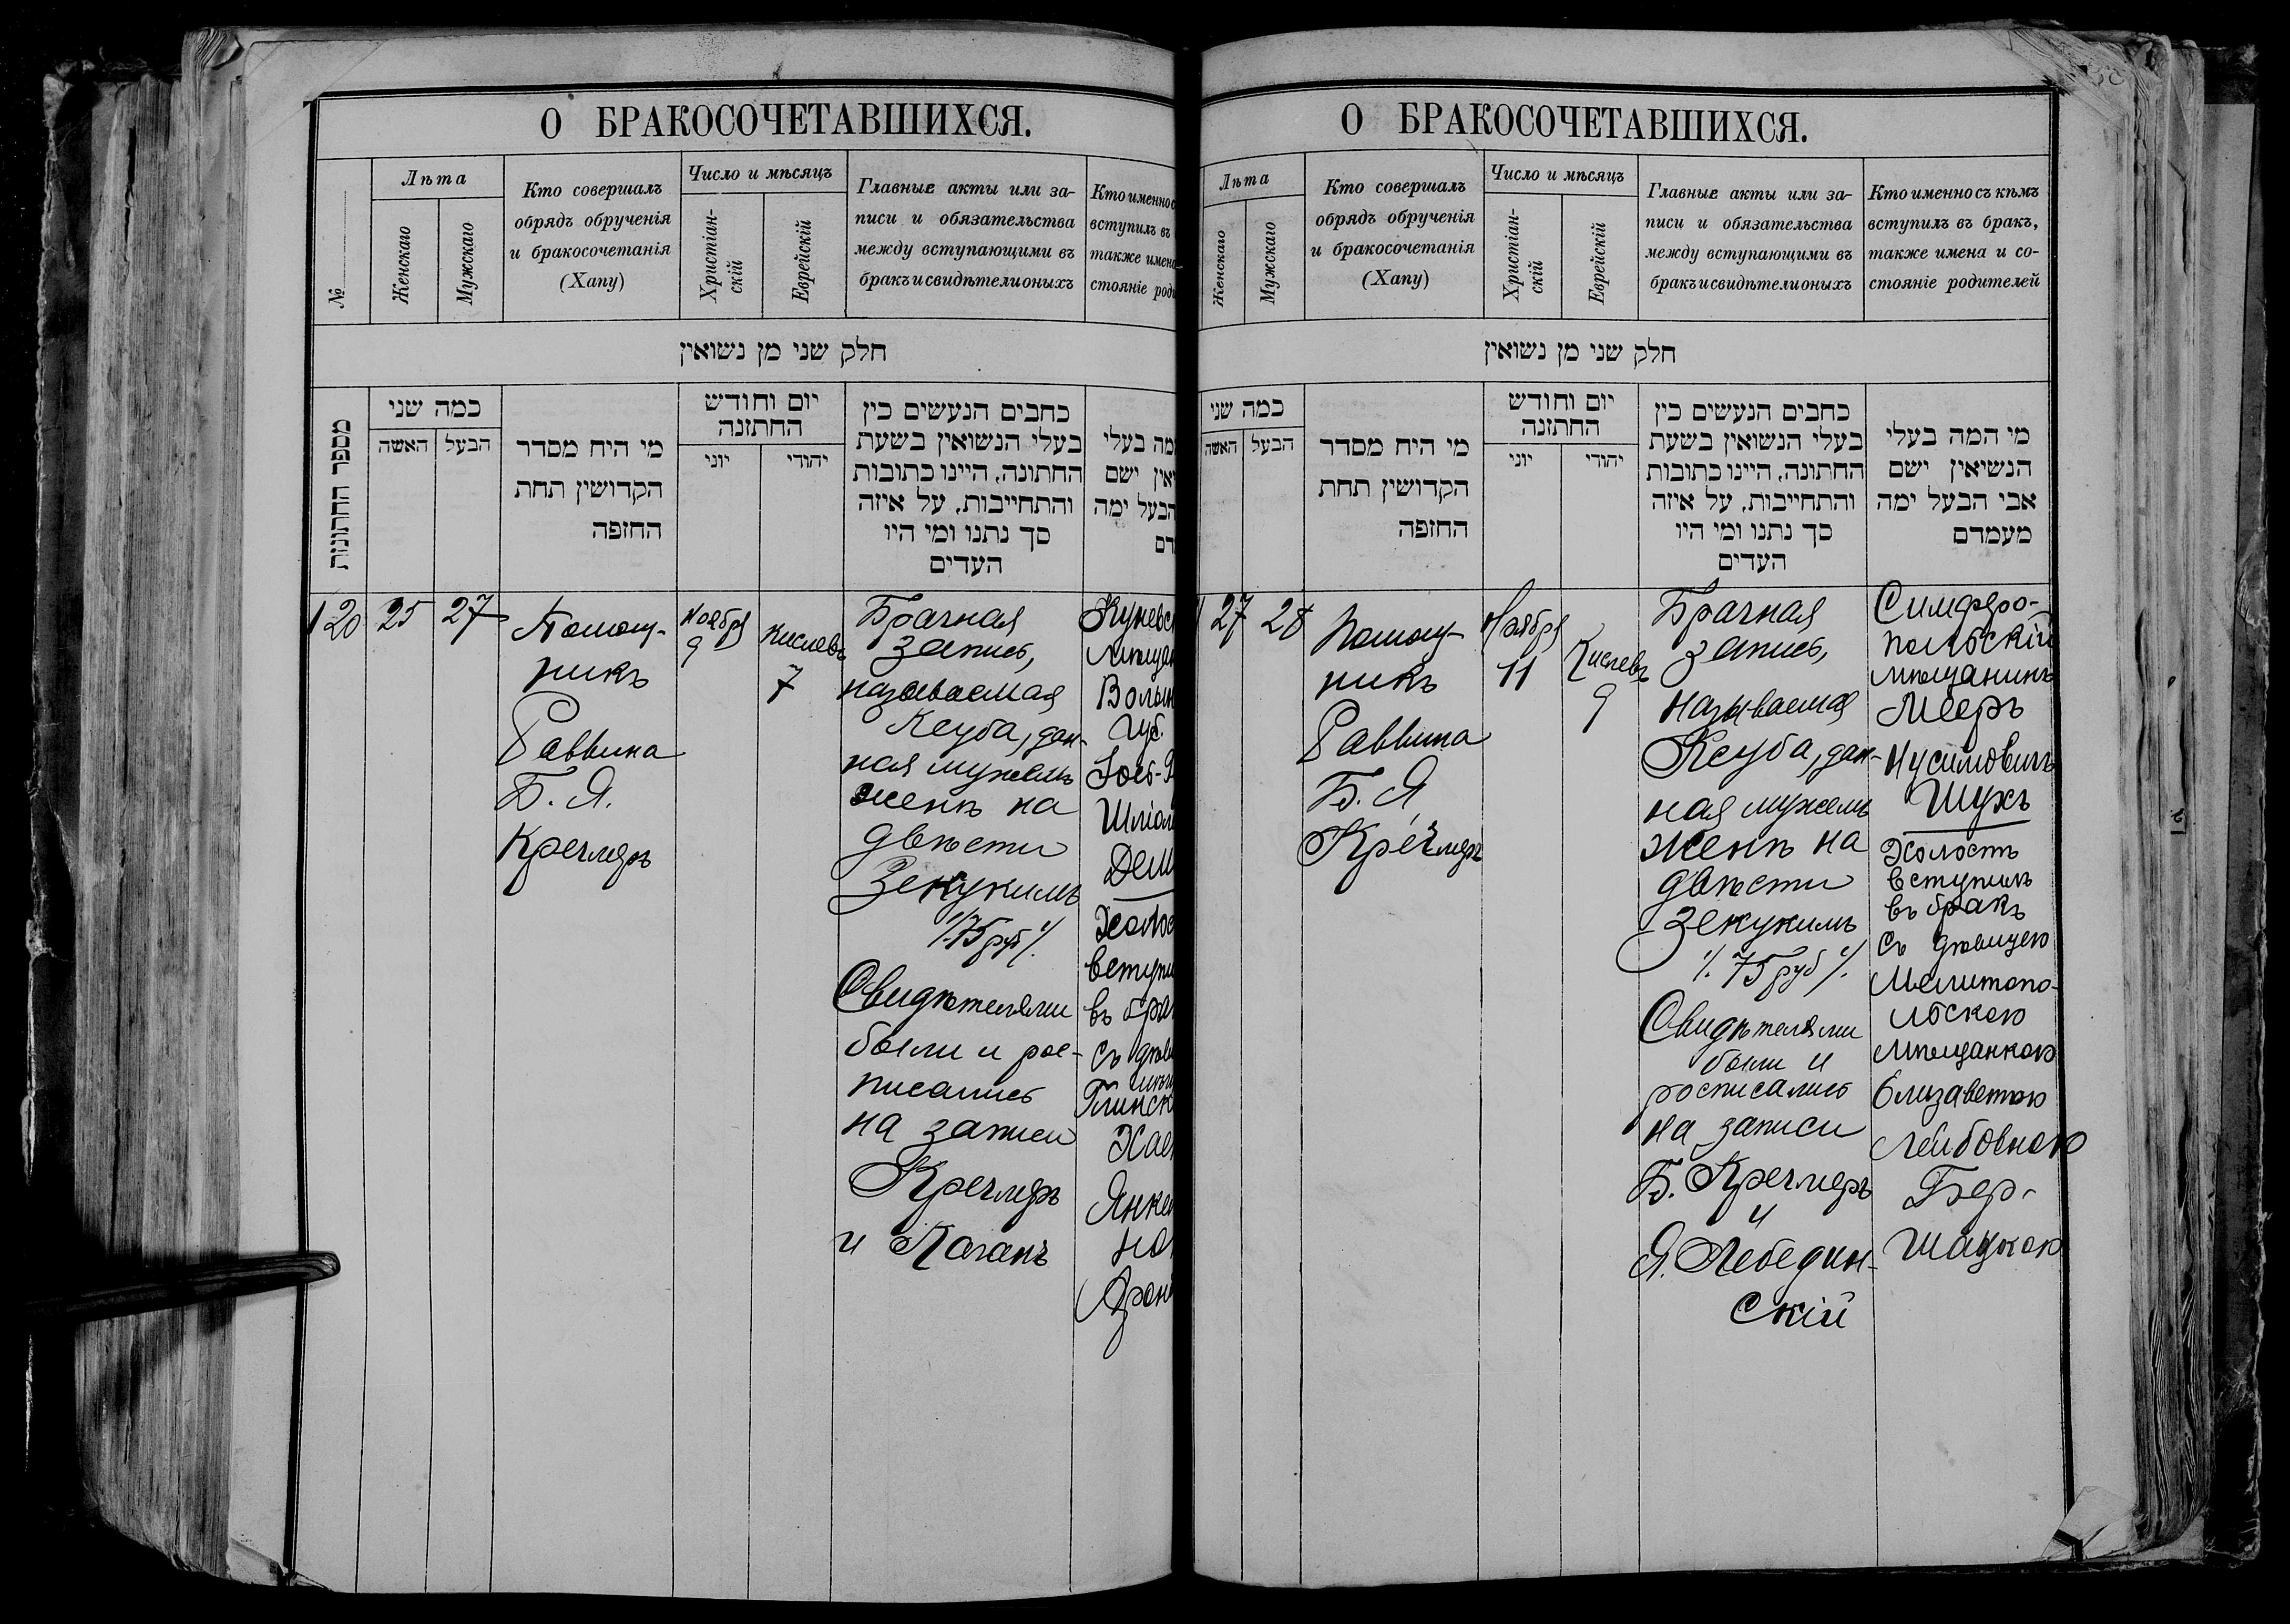 О БРАКОСОЧЕТАВШИХСЯ.
№
Лѣта
Женскаго
Мужскаго
Кто совершалъ
обрядъ обрученія
и бракосочетанія
(Хапу)
Число и мѣсяцъ
Христіан-
скій
Еврейскій
Главные акты или за-
писи и обязательства
между вступающими въ
бракъ и свидѣтели оныхъ
Кто именно с
вступилъ въ
также имена
стояніе роди
חלק שני מן נשואין
מספר החתונות
כמה שני
האשה
הבעל
מי היח מסדר
הקדושין תחת
החזפה
יום וחודש
החתזנה
יוני
יהודי
כחבים הנעשים כין
בעלי הנשואין בשעת
החתונה, היינו כתובות
והתחייבות, על איזה
סך נתנו ומי היו
העדים
מה בעלי
אין ישם
הבעל ימה
דם
120
25
27
Помощ-
никъ
Раввина
Б. Я.
Кречмеръ
Ноября
9
Кислевъ
7
Брачная
запись,
называемая
Ксуба, дан-
ная мужемъ
женѣ на
двѣсти
Зекукимъ
75 руб
Свидѣтелями
были и рос-
писались
на записи
Кречмеръ
и Каганъ
Мѣщан
Волын
Губ.
Шліом
Холос
вступи
въ бра
съ дѣви
Глинск
Хае
Янке
но
Арон
О БРАКОСОЧЕТАВШИХСЯ.
Лѣта
Женскаго
Мужскаго
Кто совершалъ
обрядъ обрученія
и бракосочетанія
(Хапу)
Число и мѣсяцъ
Христіан-
скій
Еврейскій
Главные акты или за-
писи и обязательства
между вступающими въ
бракъ и свидѣтели оныхъ
Кто именно съ кѣмъ
вступилъ въ бракъ,
также имена и со-
стояніе родителей
חלק שני מן נשואין
כמה שני
האשה
הבעל
מי היח מסדר
הקדושין תחת
החזפה
יום וחודש
החתזנה
יוני
יהודי
כחבים הנעשים כין
בעלי הנשואין בשעת
החתונה, היינו כתובות
והתחייבות, על איזה
סך נתנו ומי היו
העדים
מי המה בעלי
הנשיאין ישם
אבי הבעל ימה
מעמדם
27
28
Помощ-
никъ
Раввина
Б. Я
Кречмеръ
Ноября
11
Кислевъ
9
Брачная
запись,
называемая
Ксуба, дан-
ная мужемъ
женѣ на
двѣсти
Зекукимъ
75 руб
Свидѣтелями
были и
росписались
на записи
Б. Кречмеръ
и
Я. Лебедин-
скій
Симферо-
польскій
мѣщанинъ
Мееръ
Нусимовичъ
Шухъ
Холостъ
вступилъ
въ бракъ
съ дѣвицею
Мелитопо-
льскою
мѣщанкою
Елизаветою
Лейбовною
Бер-
шацкою